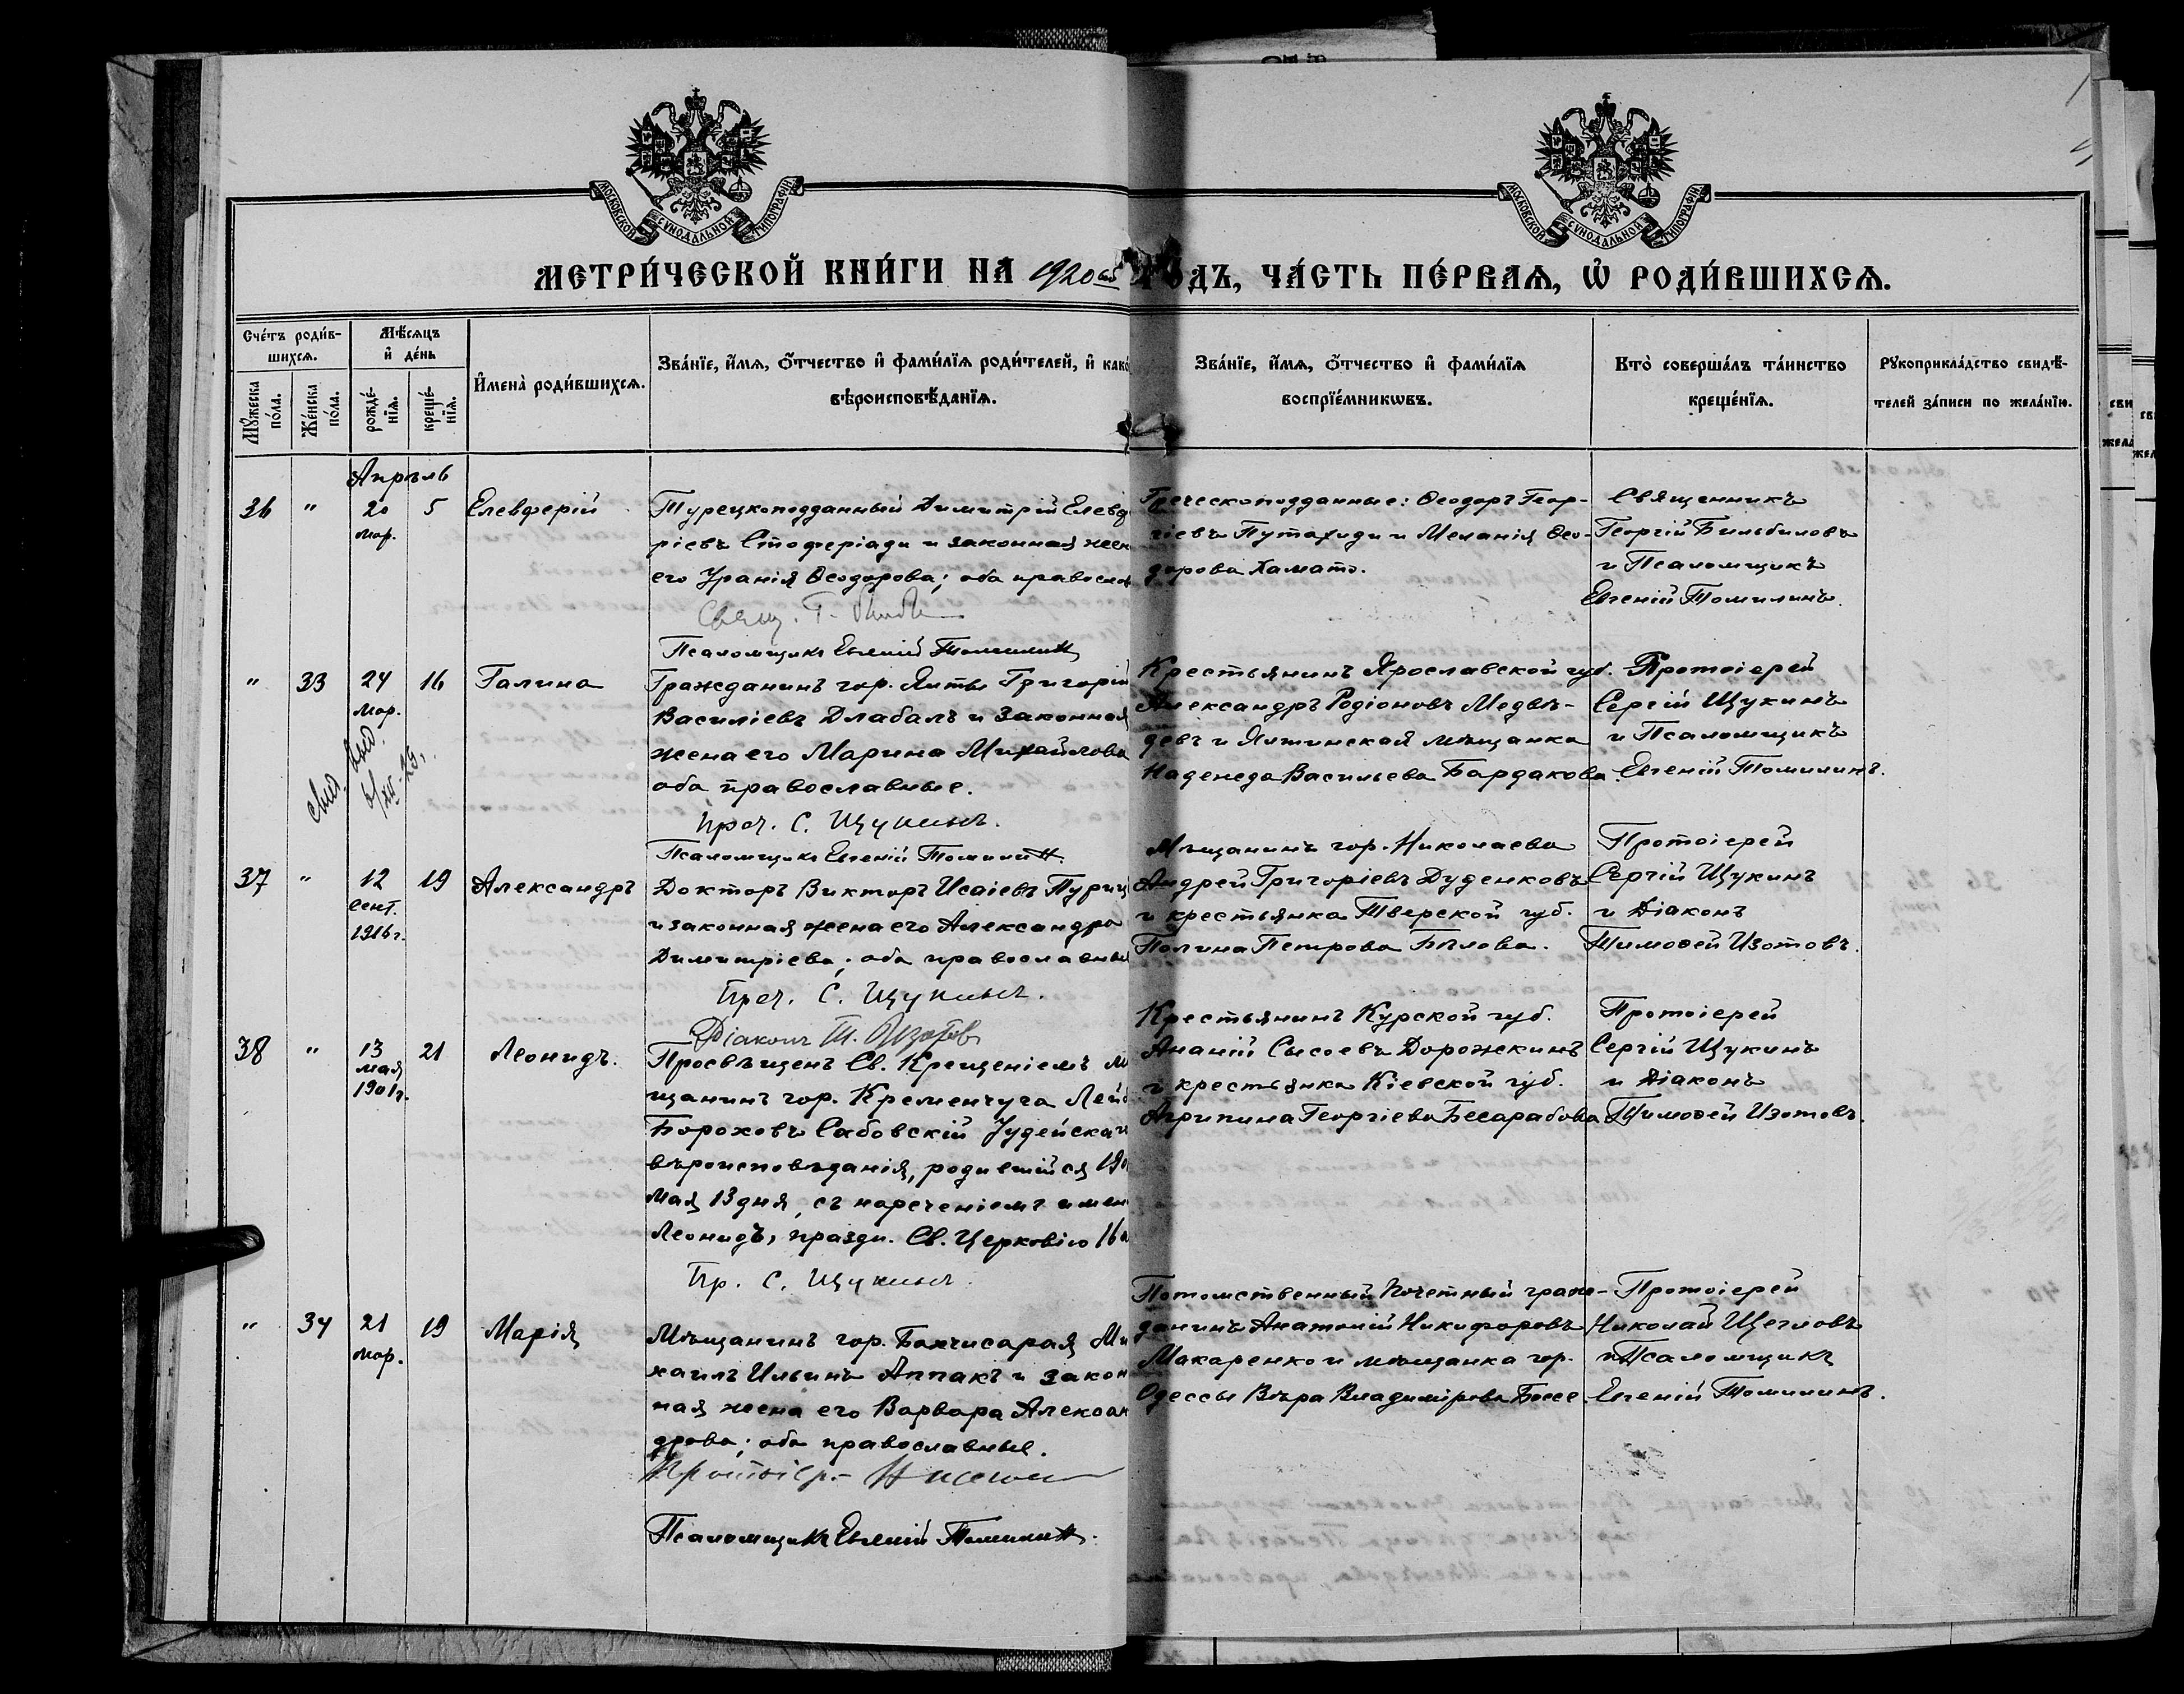 МОСКОВСКОЙ СѴНОДАЛЬНОЙ ТИПОГРАФІИ
МОСКОВСКОЙ СѴНОДАЛЬНОЙ ТИПОГРАФІИ
МЕТРИ́ЧЕСКОЙ КНИ́ГИ НА 1920 ый ГОДЪ, ЧА́СТЬ ПЕ́РВАѦ, Ѡ҆ РОДИ́ВШИХСѦ.
Сче́тъ роди́в-
шихсѧ.
Мѣ́сѧцъ
и҆ де́нь
Мꙋ́жеска по́ла.
Же́нска по́ла.
рожде́-
нїѧ.
креще́-
нїѧ.
И҆мена̀ роди́вшихсѧ.
Зва́нїе, и҆́мѧ, ѻ҆́тчество и҆ фамилїѧ роди́телей, и҆ како
вѣроисповѣ́данїѧ.
Зва́нїе, и҆́мѧ, ѻ҆́тчество и҆ фами́лїѧ
воспрїе́мникѡвъ.
Кто̀ соверша́лъ та́инство
креще́нїѧ.
Рꙋкоприкла́дство свидѣ́-
телей за́писи по жела́нїю.
Апрѣль
36 " 20 5 Елевферій
мар.
Турецкоподданный Димитрій Елевф
ріевъ Стоферіади и законная жен
его Уранія Ѳеодорова; оба правослов
Свящ. Г.
Псаломщикъ Евгеній Томилинъ
Греческоподданные: Ѳеодоръ Геор-
гіевъ Путахиди и Меланія Ѳео-
дорова Хамато.
Священникъ
Георгій Бильбиловъ
и Псаломщикъ
Евгеній Томилинъ.
" 33 24 16 Галина
мар.
Гражданинъ гор. Ялты Григорій
Василіевъ Длабалъ и законная
жена его Марина Михайлова
оба православные.
Прот. С. Щукинъ.
Псаломщикъ Евгеній Томилинъ.
Крестьянинъ Ярославской губ.
Александръ Родіоновъ Медвѣ-
девъ и Ялтинская мѣщанка
Надежда Васильева Бардакова.
Протоіерей
Сергій Щукинъ
и Псаломщикъ
Евгеній Томилинъ.
37 " 12 19 Александръ
сент.
1916 г.
Докторъ Викторъ Исаіевъ Пуриц
и законная жена его Александра
Димитріева; оба православные
Прот. С. Щукинъ.
Діаконъ Т. Изотовъ
Мѣщанинъ гор. Николаева
Андрей Григоріевъ Дуденковъ
и крестьянка Тверской губ.
Полина Петрова Бѣлова.
Протоіерей
Сергій Щукинъ
и Діаконъ
Тимоѳей Изотовъ.
38 " 13 21 Леонидъ.
мая
1901 г.
Просвѣщенъ Св. Крещеніемъ м
щанинъ гор. Кременчуга Лейб
Бороховъ Сабовскій Іудейскаг
вѣроисповѣданія, родившійся 190
мая 13 дня, съ нареченіемъ имен
Леонидъ, праздн. Св. Церковію 16 а
Пр. С. Щукинъ.
Крестьянинъ Курской губ.
Ананій Сысоевъ Дорожкинъ
и крестьянка Кіевской губ.
Агрипина Георгіева Бесарабова
Протоіерей
Сергій Щукинъ
и Діаконъ
Тимоѳей Изотовъ.
" 34 21 19 Марія
мар.
Мѣщанинъ гор. Бахчисарая Ми
хаилъ Ильинъ Аппакъ и закон
ная жена его Варвара Алексан
дрова; оба православные.
Протоіер.
Псаломщикъ Евгеній Томилинъ.
Потомственный Почетный граж-
данинъ Анатолій Никифоровъ
Макаренко и мѣщанка гор.
Одессы Вѣра Владимірова Боссе.
Протоіерей
Николай Щегловъ
и Псаломщикъ
Евгеній Томилинъ.